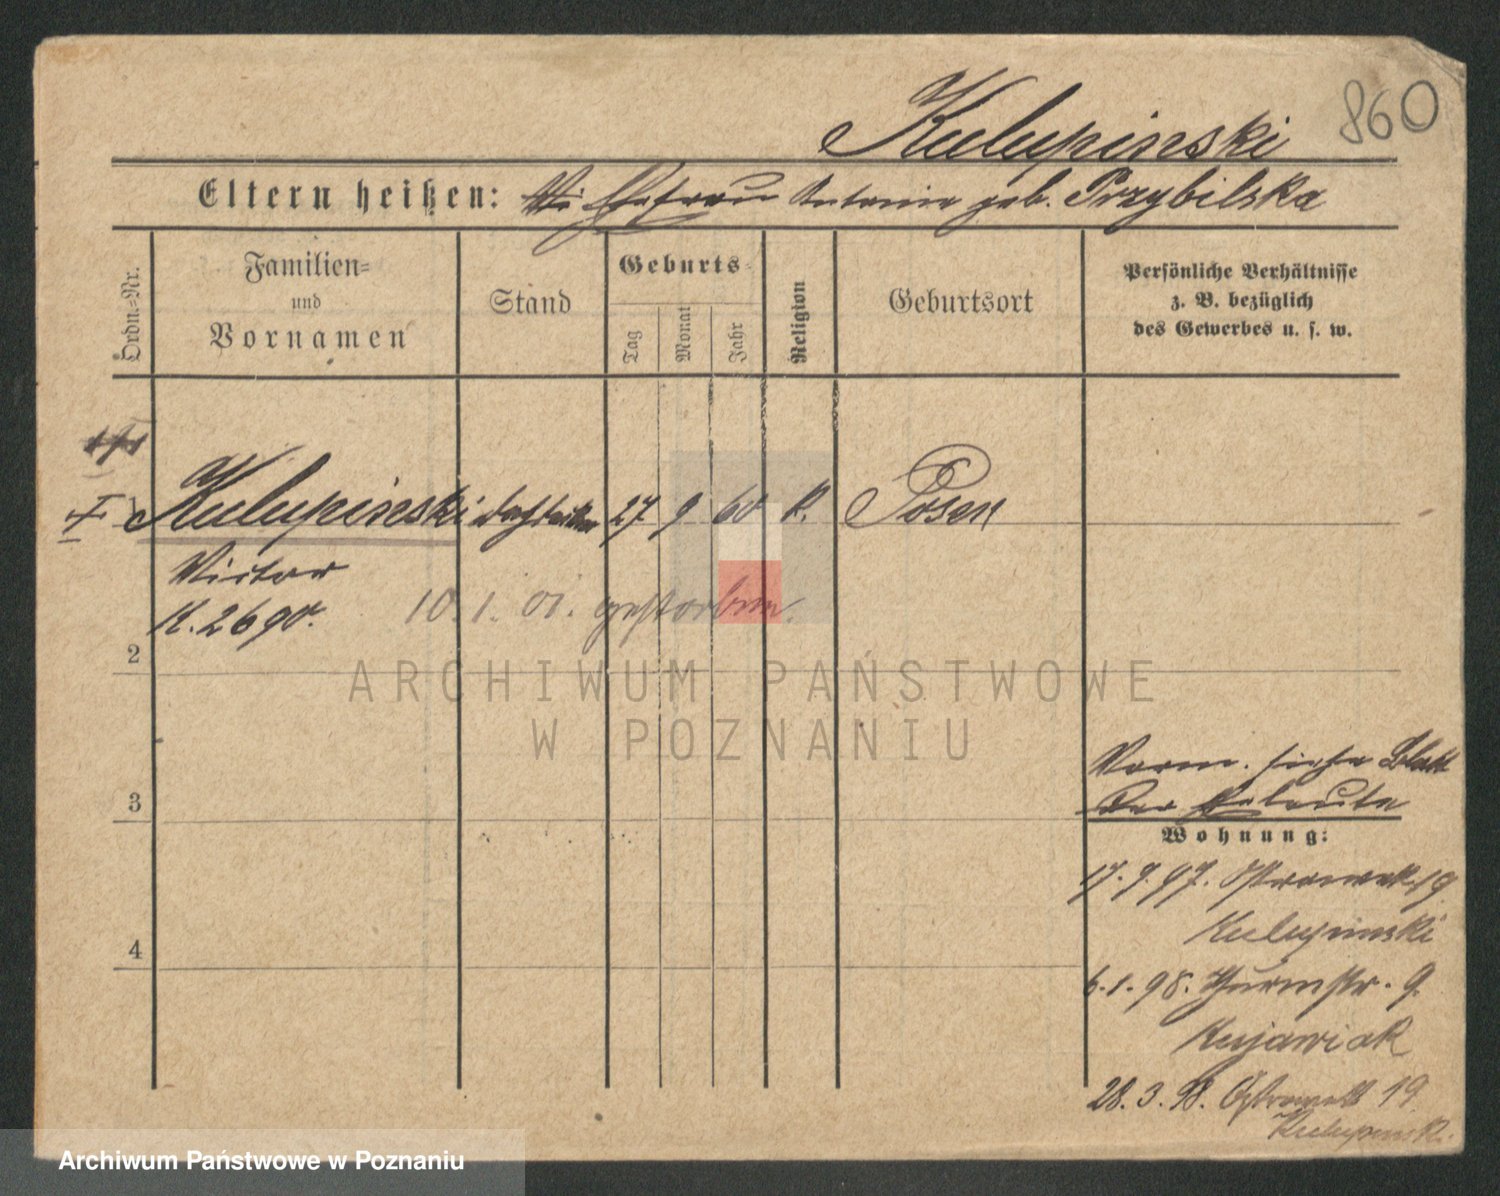 860
Kulupinski
Eltern heißen: Die Ehefrau Antonie geb. Przybilska
Ordn.-Nr.
Familien-
und
Vornamen
Stand
Geburts-
Tag
Monat
Jahr
Religion
Geburtsort
Persönliche Verhältnisse
z. B. bezüglich
des Gewerbes u. s. w.
I 1 Kulupinski Dachdecker 27 9 60 k. Posen
Victor
K. 2690.
10. 1. 01. gestorben.
2
ARCHIWUM PAŃSTWOWE
W POZNANIU
Verm. siehe Blatt
der Eheleute
3
Wohnung:
17. 9. 97. Ostrowek 19
Kulupinski
4
6. 1. 98. Thurmstr. 9.
Kujawiak
28. 3. 98. Ostrowek 19
Kulupinski.
Archiwum Państwowe w Poznaniu